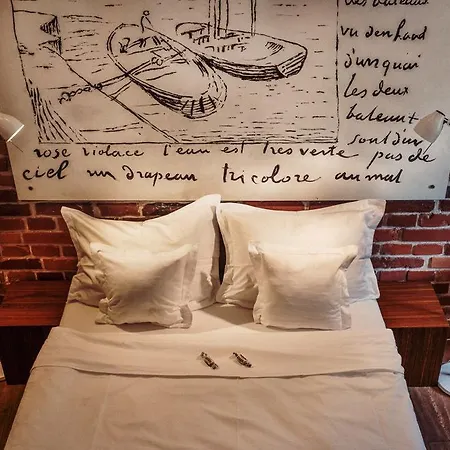 des bateaux
vu d'en haut
d'un quai
les deux
bateaux
sont d'un
rose violacé l'eau est très verte pas de
ciel un drapeau tricolore au mat